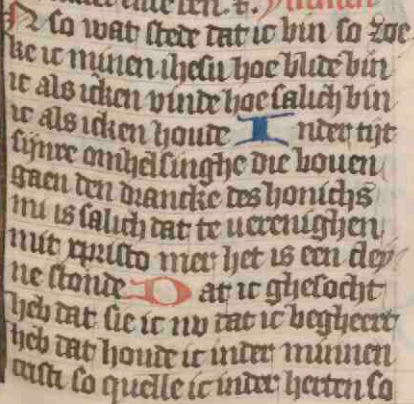 N so wat stede dat ic bin so zoe
ke ic minen ihesu hoe blide bin
ic als icken vinde hoe salich bin
ic als icken houde In der tijt
sijnre omhelsinghe die bouen
gaen den drancke des honichs
mi is salich dat te uerenighen
mit xpristo mer het is een cley
ne stonde Dat ic ghesocht
heb dat sie ic nv dat ic begheert
heb dat houde ic inder minnen
cristi so quelle ic inder herten so